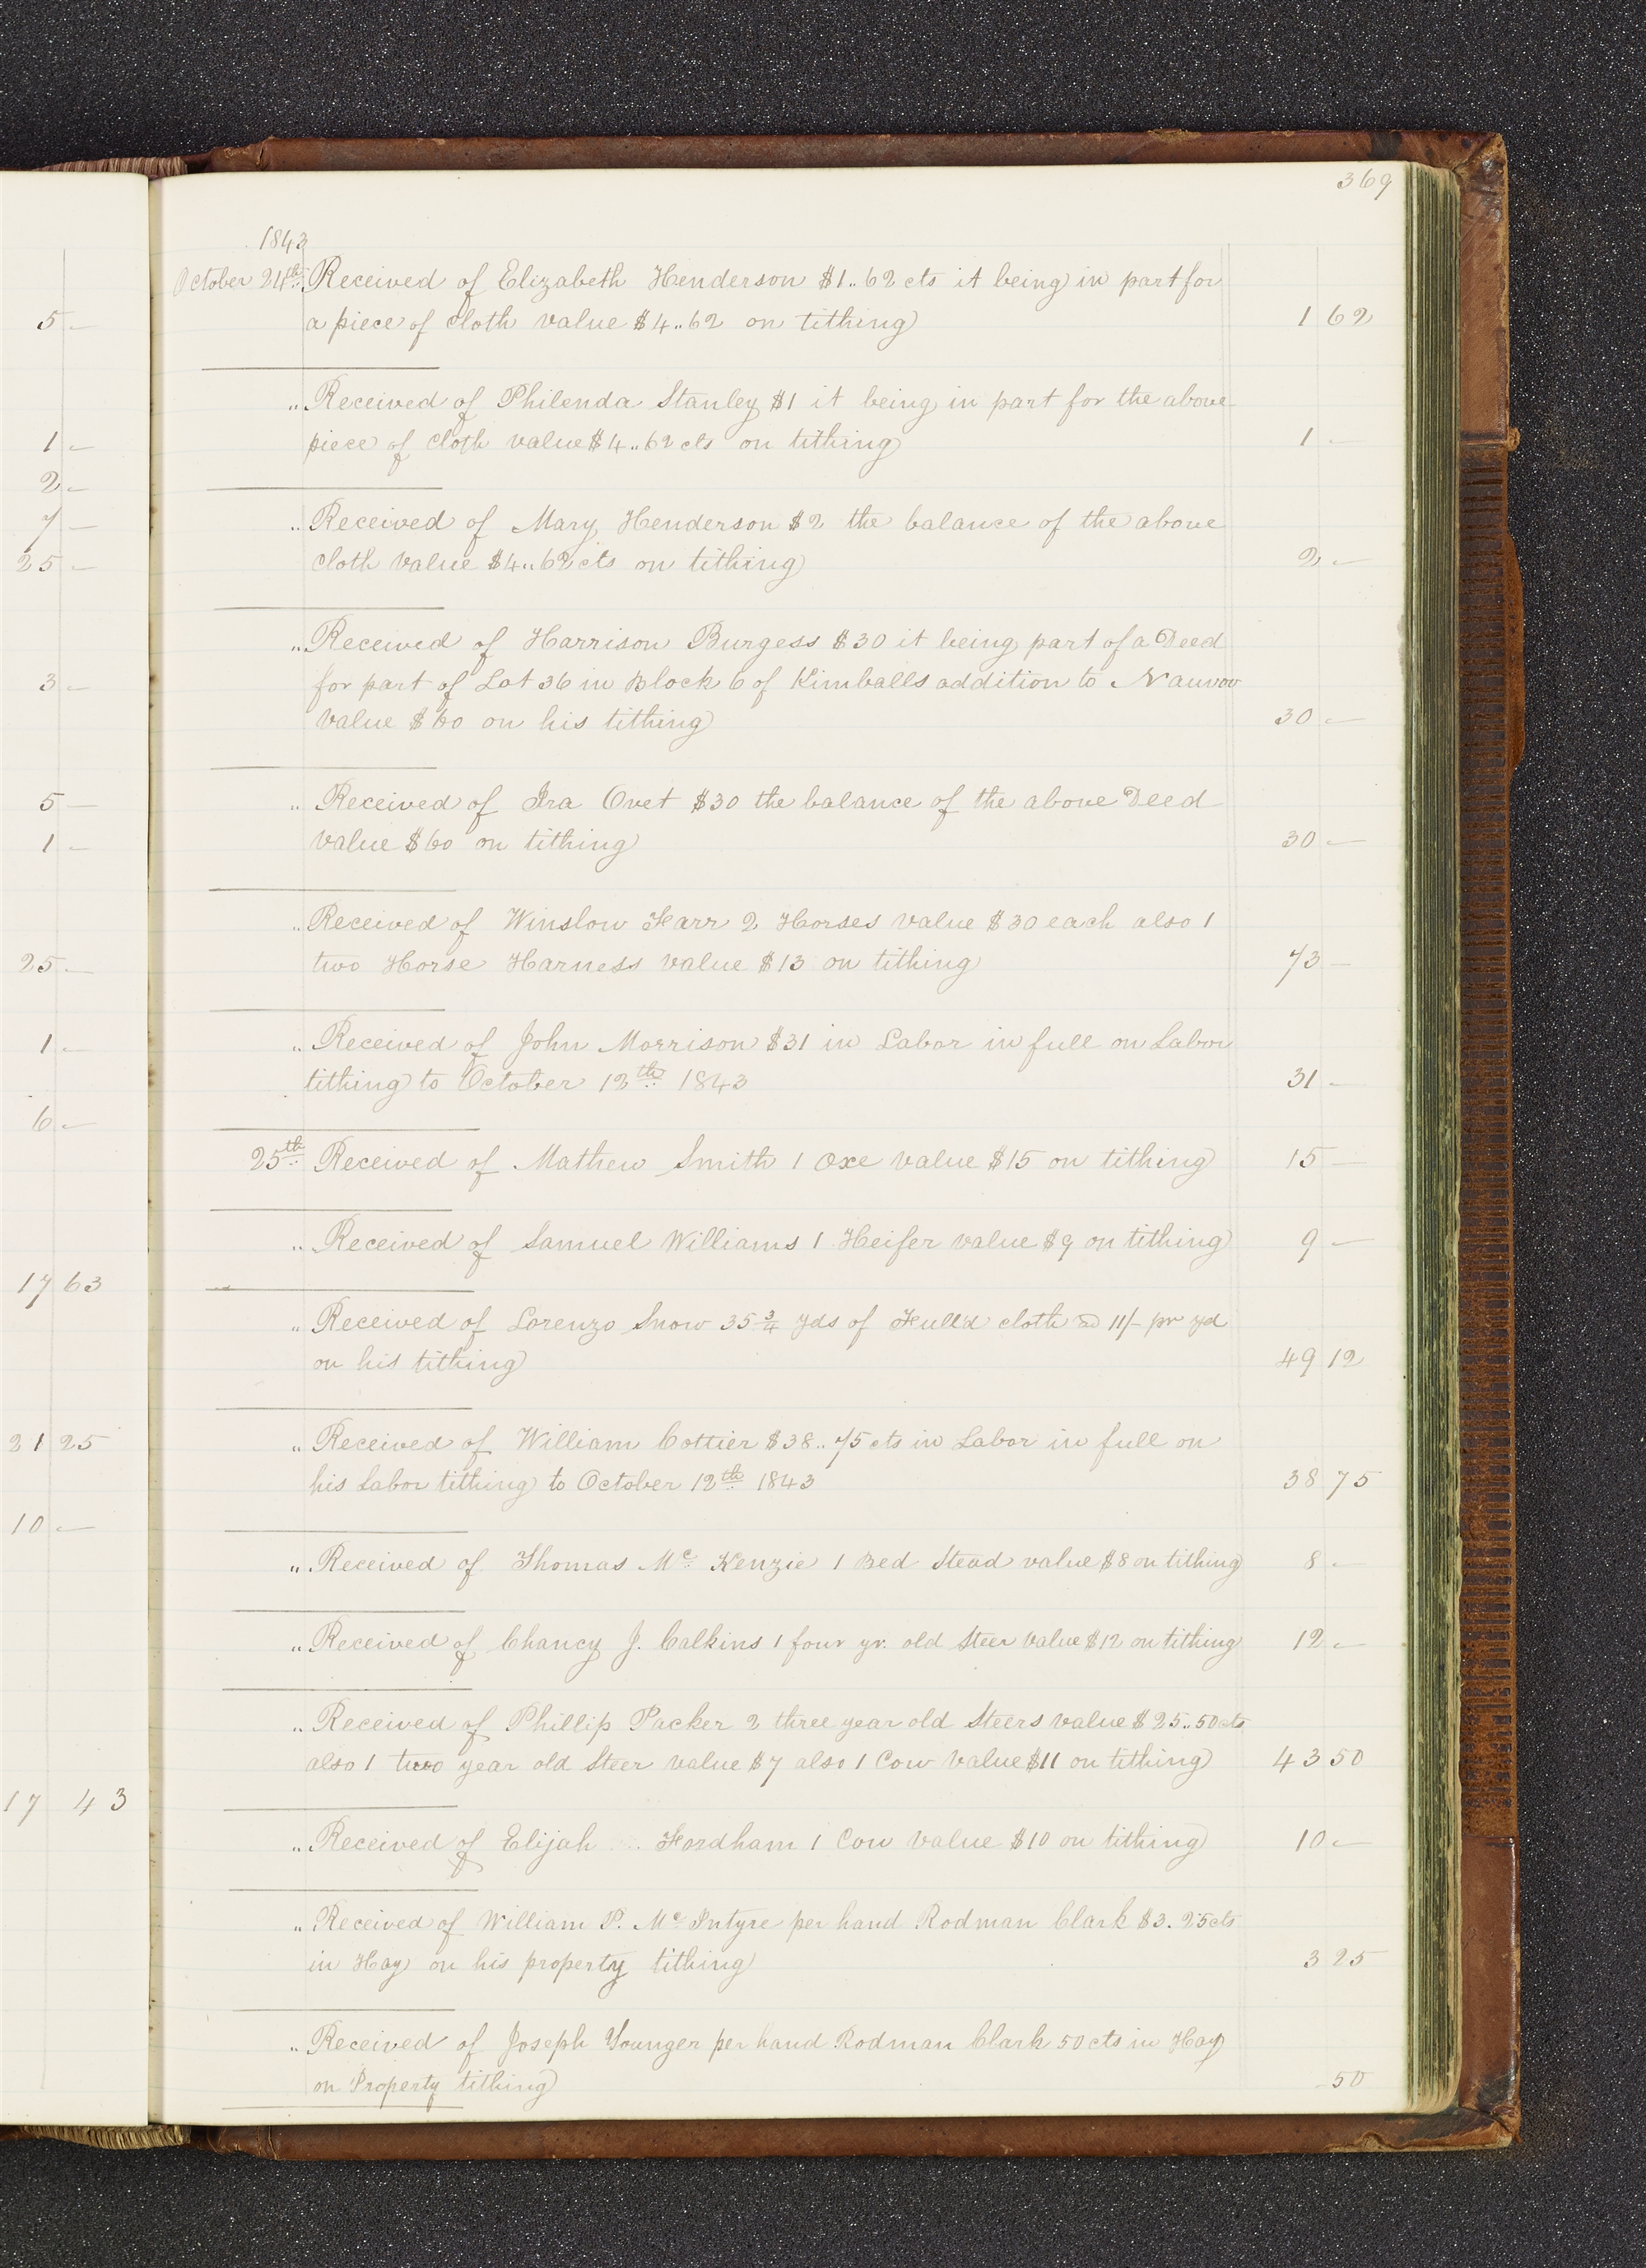 369
1843
October 24th Received of Elizabeth Henderson $1..62 cts it being in part for
a piece of cloth value $4..62 on tithing 1 62
" Received of Philenda Stanley $1 it being in part for the above
piece of cloth value $4..62 cts on tithing 1 -
" Received of Mary Henderson $2 the balance of the above
cloth value $4..62 cts on tithing 2 -
" Received of Harrison Burgess $30 it being part of a Deed
for part of Lot 36 in Block 6 of Kimballs addition to Nauvoo
value $60 on his tithing 30 -
" Received of Ira Ovet $30 the balance of the above Deed
value $60 on tithing 30 -
" Received of Winslow Farr 2 Horses value $30 each also 1
two Horse Harness value $13 on tithing 73 -
" Received of John Morrison $31 in Labor in full on Labor
tithing to October 12th 1843 31 -
25th Received of Mathew Smith 1 Oxe value $15 on tithing 15 -
" Received of Samuel Williams 1 Heifer value $9 on tithing 9 -
" Received of Lorenzo Snow 35 3/4 yds of Full'd cloth @ 11/- pr yd
on his tithing 49 12
" Received of William Cottier $38..75 cts in Labor in full on
his Labor tithing to October 12th 1843 38 75
" Received of Thomas Mc Kenzie 1 Bed Stead value $8 on tithing 8 -
" Received of Chancy J. Calkins 1 four yr. old Steer value $12 on tithing 12 -
" Received of Phillip Packer 2 three year old Steers value $25..50 cts
also 1 two year old Steer value $7 also 1 Cow value $11 on tithing 43 50
" Received of Elijah Fordham 1 Cow value $10 on tithing 10 -
" Received of William P. Mc Intyre per hand Rodman Clark $3.25 cts
in Hay on his property tithing 3 25
" Received of Joseph Younger per hand Rodman Clark 50 cts in Hay
on Property tithing 50
5 -
1 -
2 -
7 -
25 -
3 -
5 -
1 -
25 -
1 -
6 -
17 63
21 25
10 -
17 43